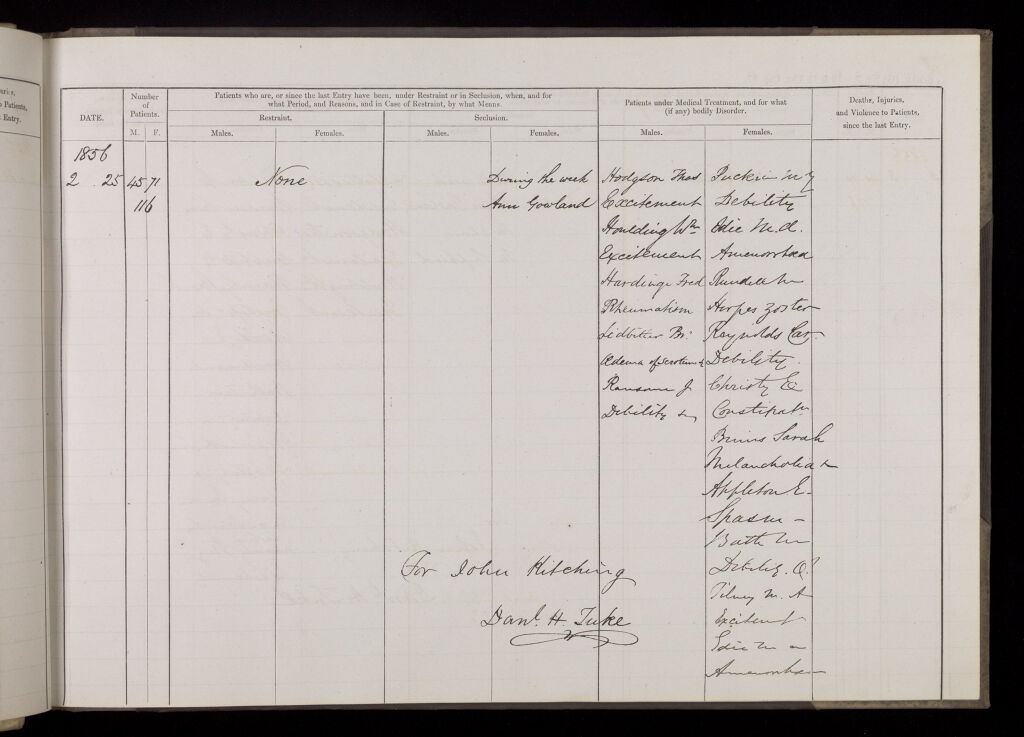 uries,
o Patients,
Entry.
DATE.
Number
of
Patients.
M. F.
Patients who are, or since the last Entry have been, under Restraint or in Seclusion, when, and for
what Period, and Reasons, and in Case of Restraint, by what Means.
Restraint. Seclusion.
Males. Females. Males. Females.
Patients under Medical Treatment, and for what
(if any) bodily Disorder.
Males. Females.
Deaths, Injuries,
and Violence to Patients,
since the last Entry.
1856
2 . 25 45 71 None During the week Hodgson Thos
116 Ann Gowland Excitement Debility
Houlding Wm Edie M.d.
Excitement Amenorrhœa
Hardinge Fred Rundell M
Rheumatism Herpes zoster
Lidbitter Br: Reynolds Car,
Œdema of Scrotum Debility.
Ransome J Christy E
Debility Constipatn
Binns Sarah
Melancholia
Appleton E-
Spasm -
For John Kitching Debility.
Tilney M. A
Danl. H. Tuke Excitemt
Edie M